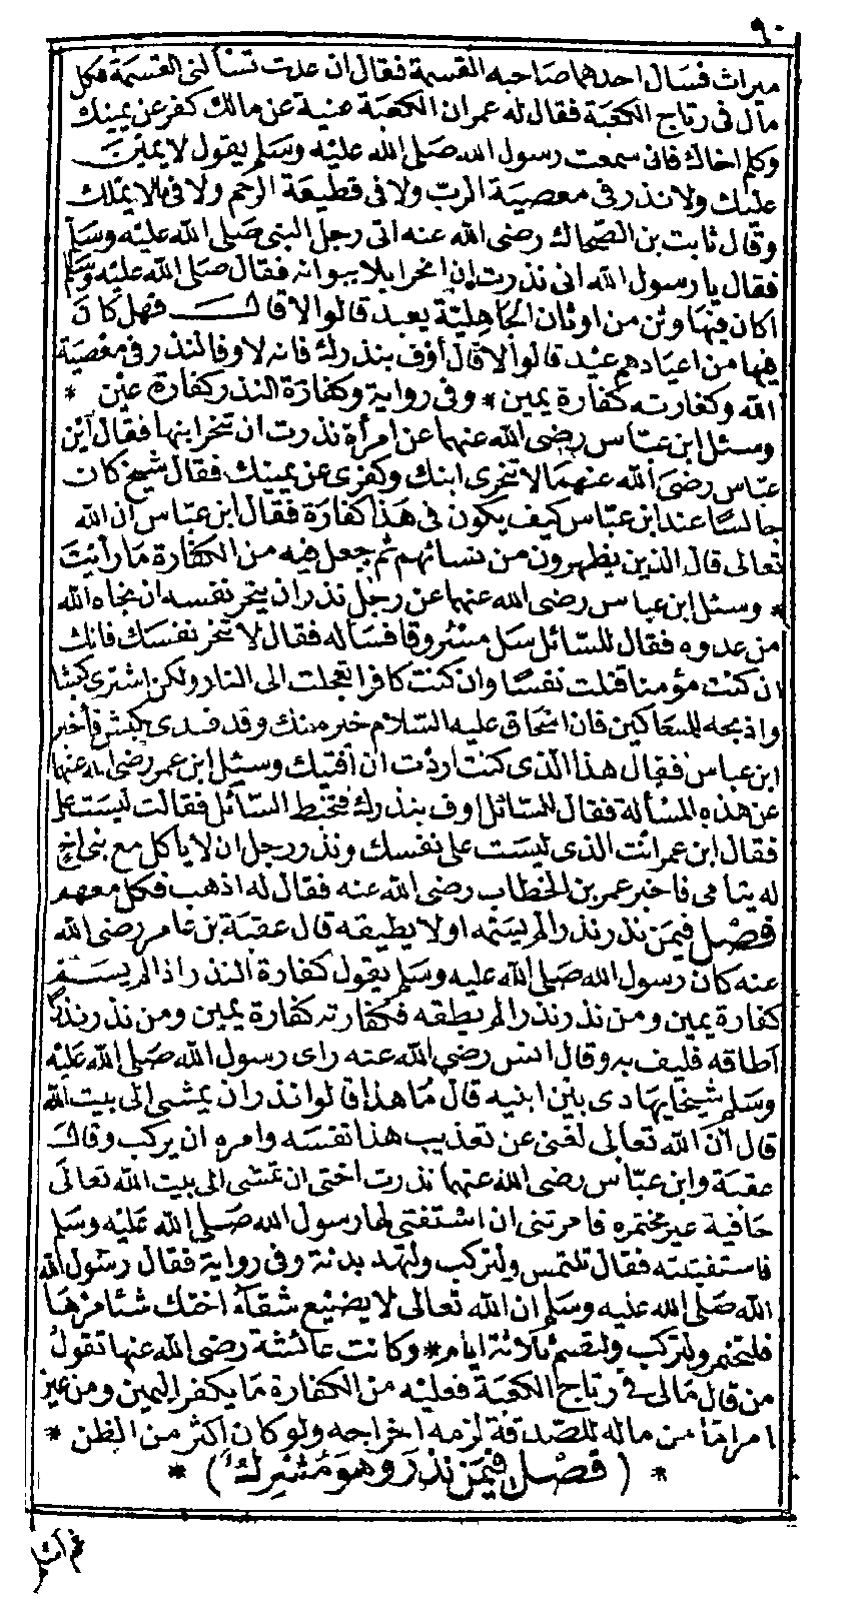 ٩٠
ميراث فسال احدهما صاحبه القسمة فقال ان عدت تسألنى القسمة فكل
مال فى رتاج الكعبة فقال له عمر ان الكعبة غنية عن مالك كفر عن يمينك
وكلم اخاك فانى سمعت رسول الله صلى الله عليه وسلم يقول لا يمين
عليك ولا نذر فى معصية الرب ولا فى قطيعة الرحم ولا فيما لا يملك
وقال ثابت بن الضحاك رضى الله عنه اتى رجل النبى صلى الله عليه وسلم
فقال يا رسول الله انى نذرت ان انحر ابلا ببوانه فقال صلى الله عليه وسلم
اكان فيها وثن من اوثان الجاهلية يعبد قالوا لا قال فهل كان
فيها من اعيادهم عيد قالوا لا قال أوف بنذرك فانه لا وفا لنذر فى معصية
الله وكفارته كفارة يمين * وفى رواية وكفارة النذر كفارة يمين *
وسئل ابن عباس رضى الله عنهما عن امرأة نذرت ان تنحر ابنها فقال ابن
عباس رضى الله عنهما لا تنحرى ابنك وكفرى عن يمينك فقال شيخ كان
جالسًا عند ابن عباس كيف يكون فى هذا كفارة فقال ابن عباس ان الله
تعالى قال الذين يظهرون من نسائهم ثم جعل فيه من الكفارة ما رأيت
* وسئل ابن عباس رضى الله عنهما عن رجل نذر ان ينحر نفسه ان نجاه الله
من عدوه فقال للسائل سل مسروقا فساله فقال لا تنحر نفسك فانك
ان كنت مؤمنا قتلت نفسًا وان كنت كافرا تعجلت الى النار ولكن اشترى كبشا
واذبحه للمساكين فان اسحاق عليه السلام خير منك وقد فدى بكبش فأخبر
ابن عباس فقال هذا الذى كنت اردت ان افتيك وسئل ابن عمر رضى الله عنهما
عن هذه المسألة فقال للسائل اوف بنذرك فتخبط السائل فقالت ليست على
فقال ابن عمر انت الذى ليست على نفسك ونذر رجل ان لا ياكل مع بنى اخ
له يتامى فاخبر عمر بن الخطاب رضى الله عنه فقال له اذهب فكل معهم
فصل فيمن نذر نذرا لم يسمه او لا يطيقه قال عقبة بن عامر رضى الله
عنه كان رسول الله صلى الله عليه وسلم يقول كفارة النذر اذا لم يسم
كفارة يمين ومن نذر نذرا لم يطقه فكفارته كفارة يمين ومن نذر نذرًا
أطاقه فليف به وقال انس رضى الله عنه راى رسول الله صلى الله عليه
وسلم شيخا يهادى بين ابنيه قال ما هذا قالوا نذر ان يمشى الى بيت الله
قال ان الله تعالى لغنى عن تعذيب هذا نفسه وامره ان يركب وقال
عقبة وابن عباس رضى الله عنهما نذرت اختى ان تمشى الى بيت الله تعالى
حافية غير مختمره فامرتنى ان استفتى لها رسول الله صلى الله عليه وسلم
فاستفتيته فقال تلتمس ولتركب ولتهد بدنة وفى رواية فقال رسول الله
الله صلى الله عليه وسلم ان الله تعالى لا يصنع شقاء اختك شئا مرها
فلتختمر ولتركب ولتصم ثلاثة ايام * وكانت عائشة رضى الله عنها تقول
من قال مالى فى رتاج الكعبة فعليه من الكفارة ما يكفر اليمين ومن عين
امرامّا من ماله للصدقة لزمه اخراجه ولو كان اكثر من الظن *
* ( فصل فيمن نذر وهو مشرك ) *